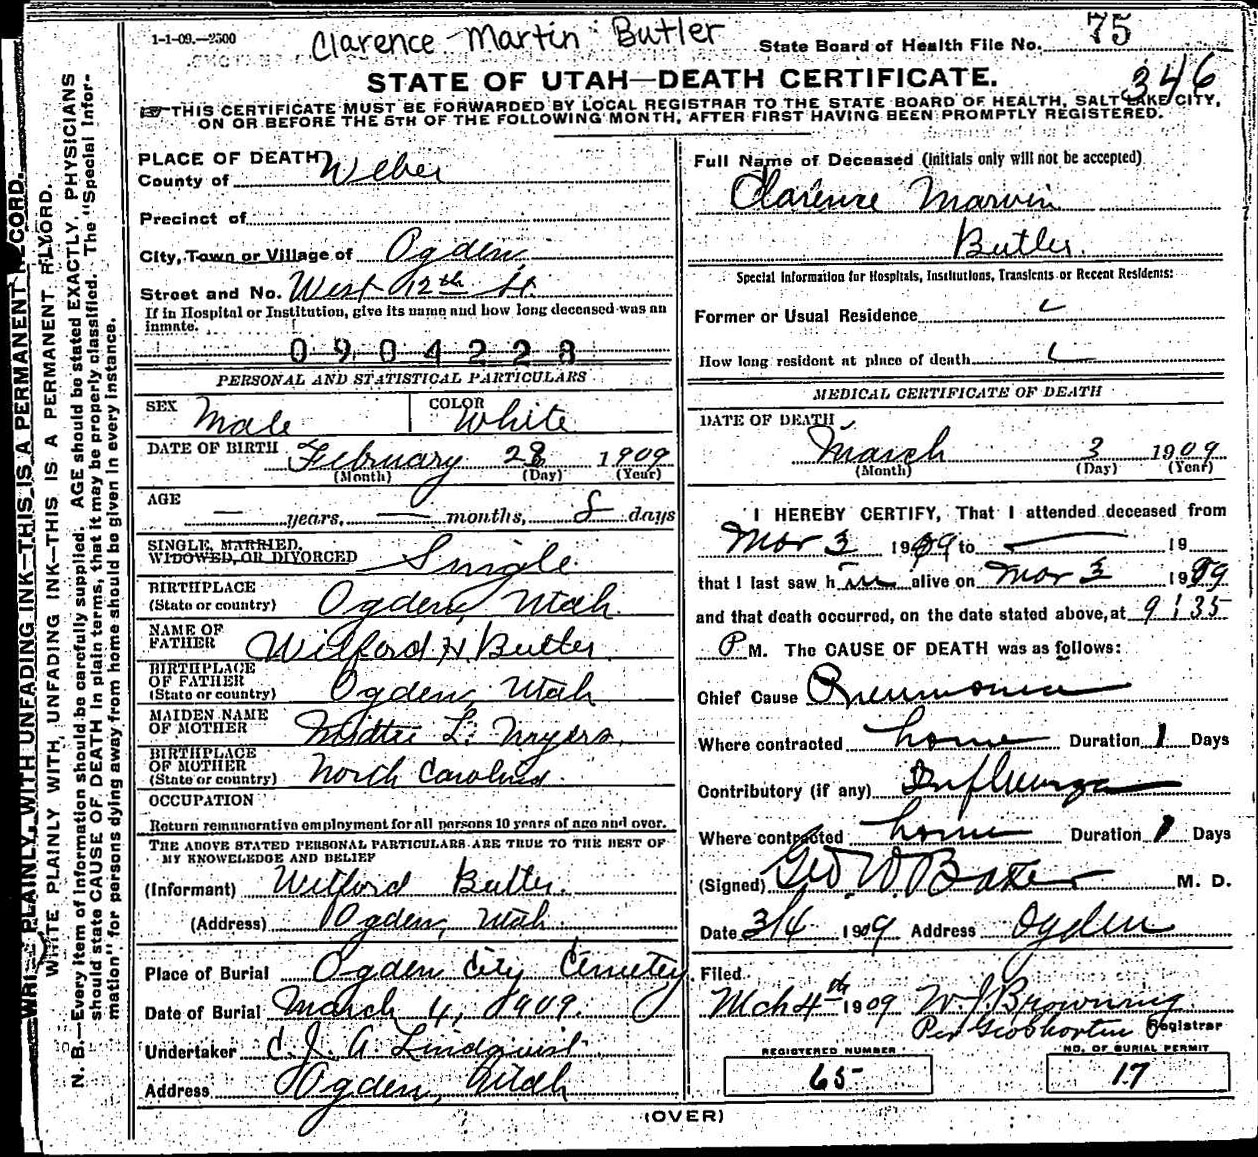 1-1-09.—2500
Clarence Martin Butler
State Board of Health File No. 75
346
STATE OF UTAH—DEATH CERTIFICATE.
☞THIS CERTIFICATE MUST BE FORWARDED BY LOCAL REGISTRAR TO THE STATE BOARD OF HEALTH, SALT LAKE CITY,
ON OR BEFORE THE 5TH OF THE FOLLOWING MONTH, AFTER FIRST HAVING BEEN PROMPTLY REGISTERED.
WRITE PLAINLY, WITH UNFADING INK—THIS IS A PERMANENT RECORD.
WRITE PLAINLY WITH UNFADING INK—THIS IS A PERMANENT
N. B.—Every item of information should be carefully supplied. AGE should be stated EXACTLY. PHYSICIANS
should state CAUSE OF DEATH in plain terms, that it may be properly classified. The "Special Infor-
mation" for persons dying away from home should be given in every instance.
PLACE OF DEATH
County of Weber
Precinct of
City, Town or Village of Ogden
Street and No. West 12th St.
If in Hospital or Institution, give its name and how long deceased was an
inmate.
0904228
PERSONAL AND STATISTICAL PARTICULARS
SEX Male COLOR White
DATE OF BIRTH February 28 1909
(Month) (Day) (Year)
AGE — years, — months, 8 days
SINGLE, MARRIED,
WIDOWED, OR DIVORCED Single
BIRTHPLACE
(State or country) Ogden, Utah.
NAME OF
FATHER Wilford H. Butler
BIRTHPLACE
OF FATHER
(State or country) Ogden, Utah
MAIDEN NAME
OF MOTHER L.
BIRTHPLACE
OF MOTHER
(State or country) North Carolina.
OCCUPATION
Return remunerative employment for all persons 10 years of age and over.
THE ABOVE STATED PERSONAL PARTICULARS ARE TRUE TO THE BEST OF
MY KNOWELEDGE AND BELIEF
(Informant) Wilford Butler.
(Address) Ogden, Utah.
Place of Burial Ogden City Cemetey
Date of Burial March 4, 1909.
Undertaker C. J. A. Lindquist.
Address Ogden, Utah
Full Name of Deceased (initials only will not be accepted)
Clarence Marvin
Butler.
Special Information for Hospitals, Institutions, Transients or Recent Residents:
Former or Usual Residence
How long resident at place of death
MEDICAL CERTIFICATE OF DEATH
DATE OF DEATH
March 3 1909
(Month) (Day) (Year)
I HEREBY CERTIFY, That I attended deceased from
Mar 3 1909 to — 19
that I last saw him alive on Mar 3 1909
and that death occurred, on the date stated above, at 9:35
P M. The CAUSE OF DEATH was as follows:
Chief Cause Pneumonia
Where contracted home Duration 1 Days
Contributory (if any) Influenza
Where contracted home Duration Days
(Signed) Geo W. Baker M. D.
Date 3/4 1909 Address Ogden
Filed
Mch 4th 1909 W. J. Browning
Per Geo Shorten Registrar
REGISTERED NUMBER
65
NO. OF BURIAL PERMIT
17
(OVER)